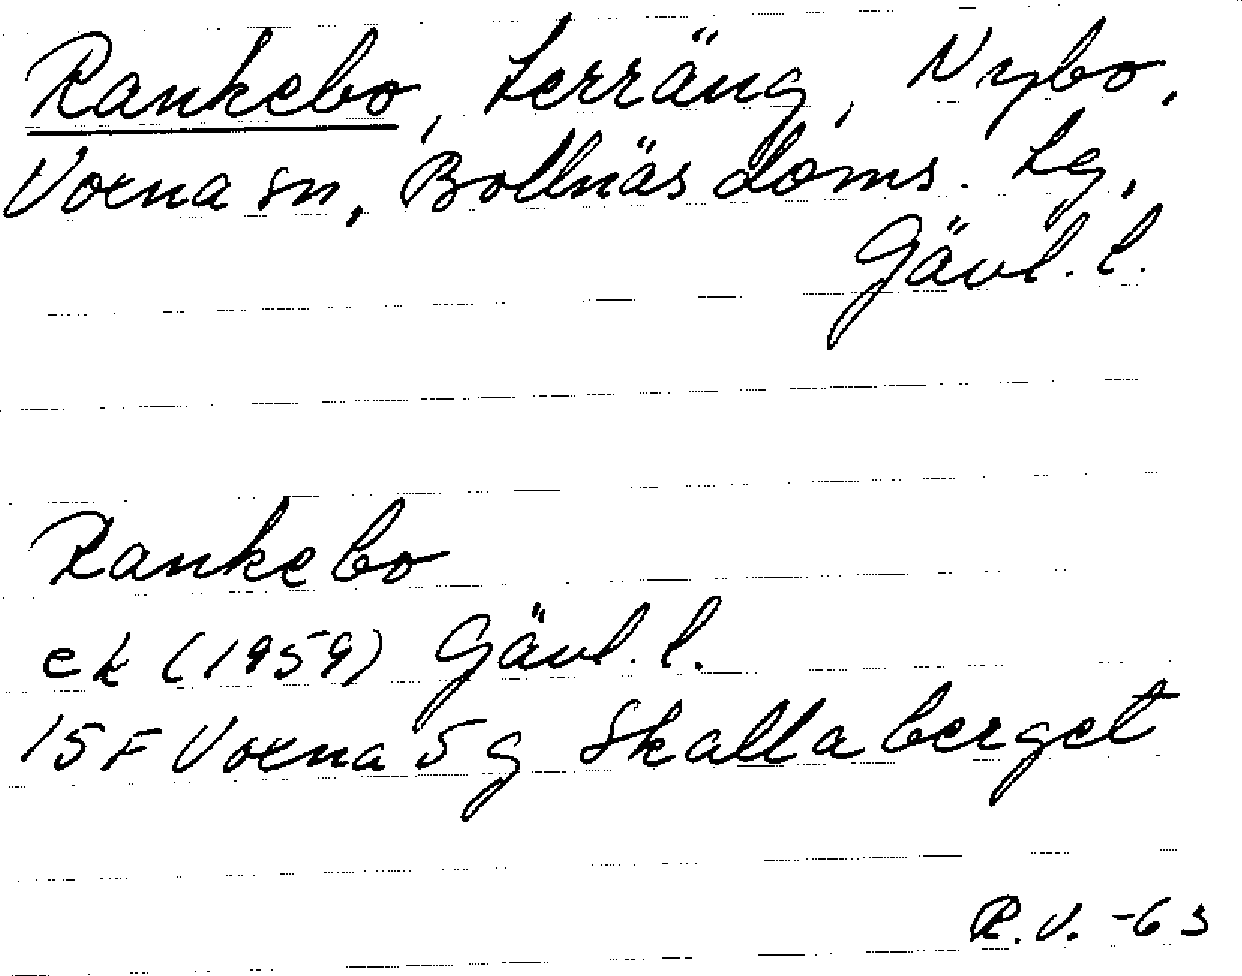 Rankebo, terräng, Nybo,
Voxna sn, Bollnäs doms. tg,
Gävl. l.
Rankebo
ek (1959) Gävl. l.
15F Voxna 5g Skallaberget
R.V. -63